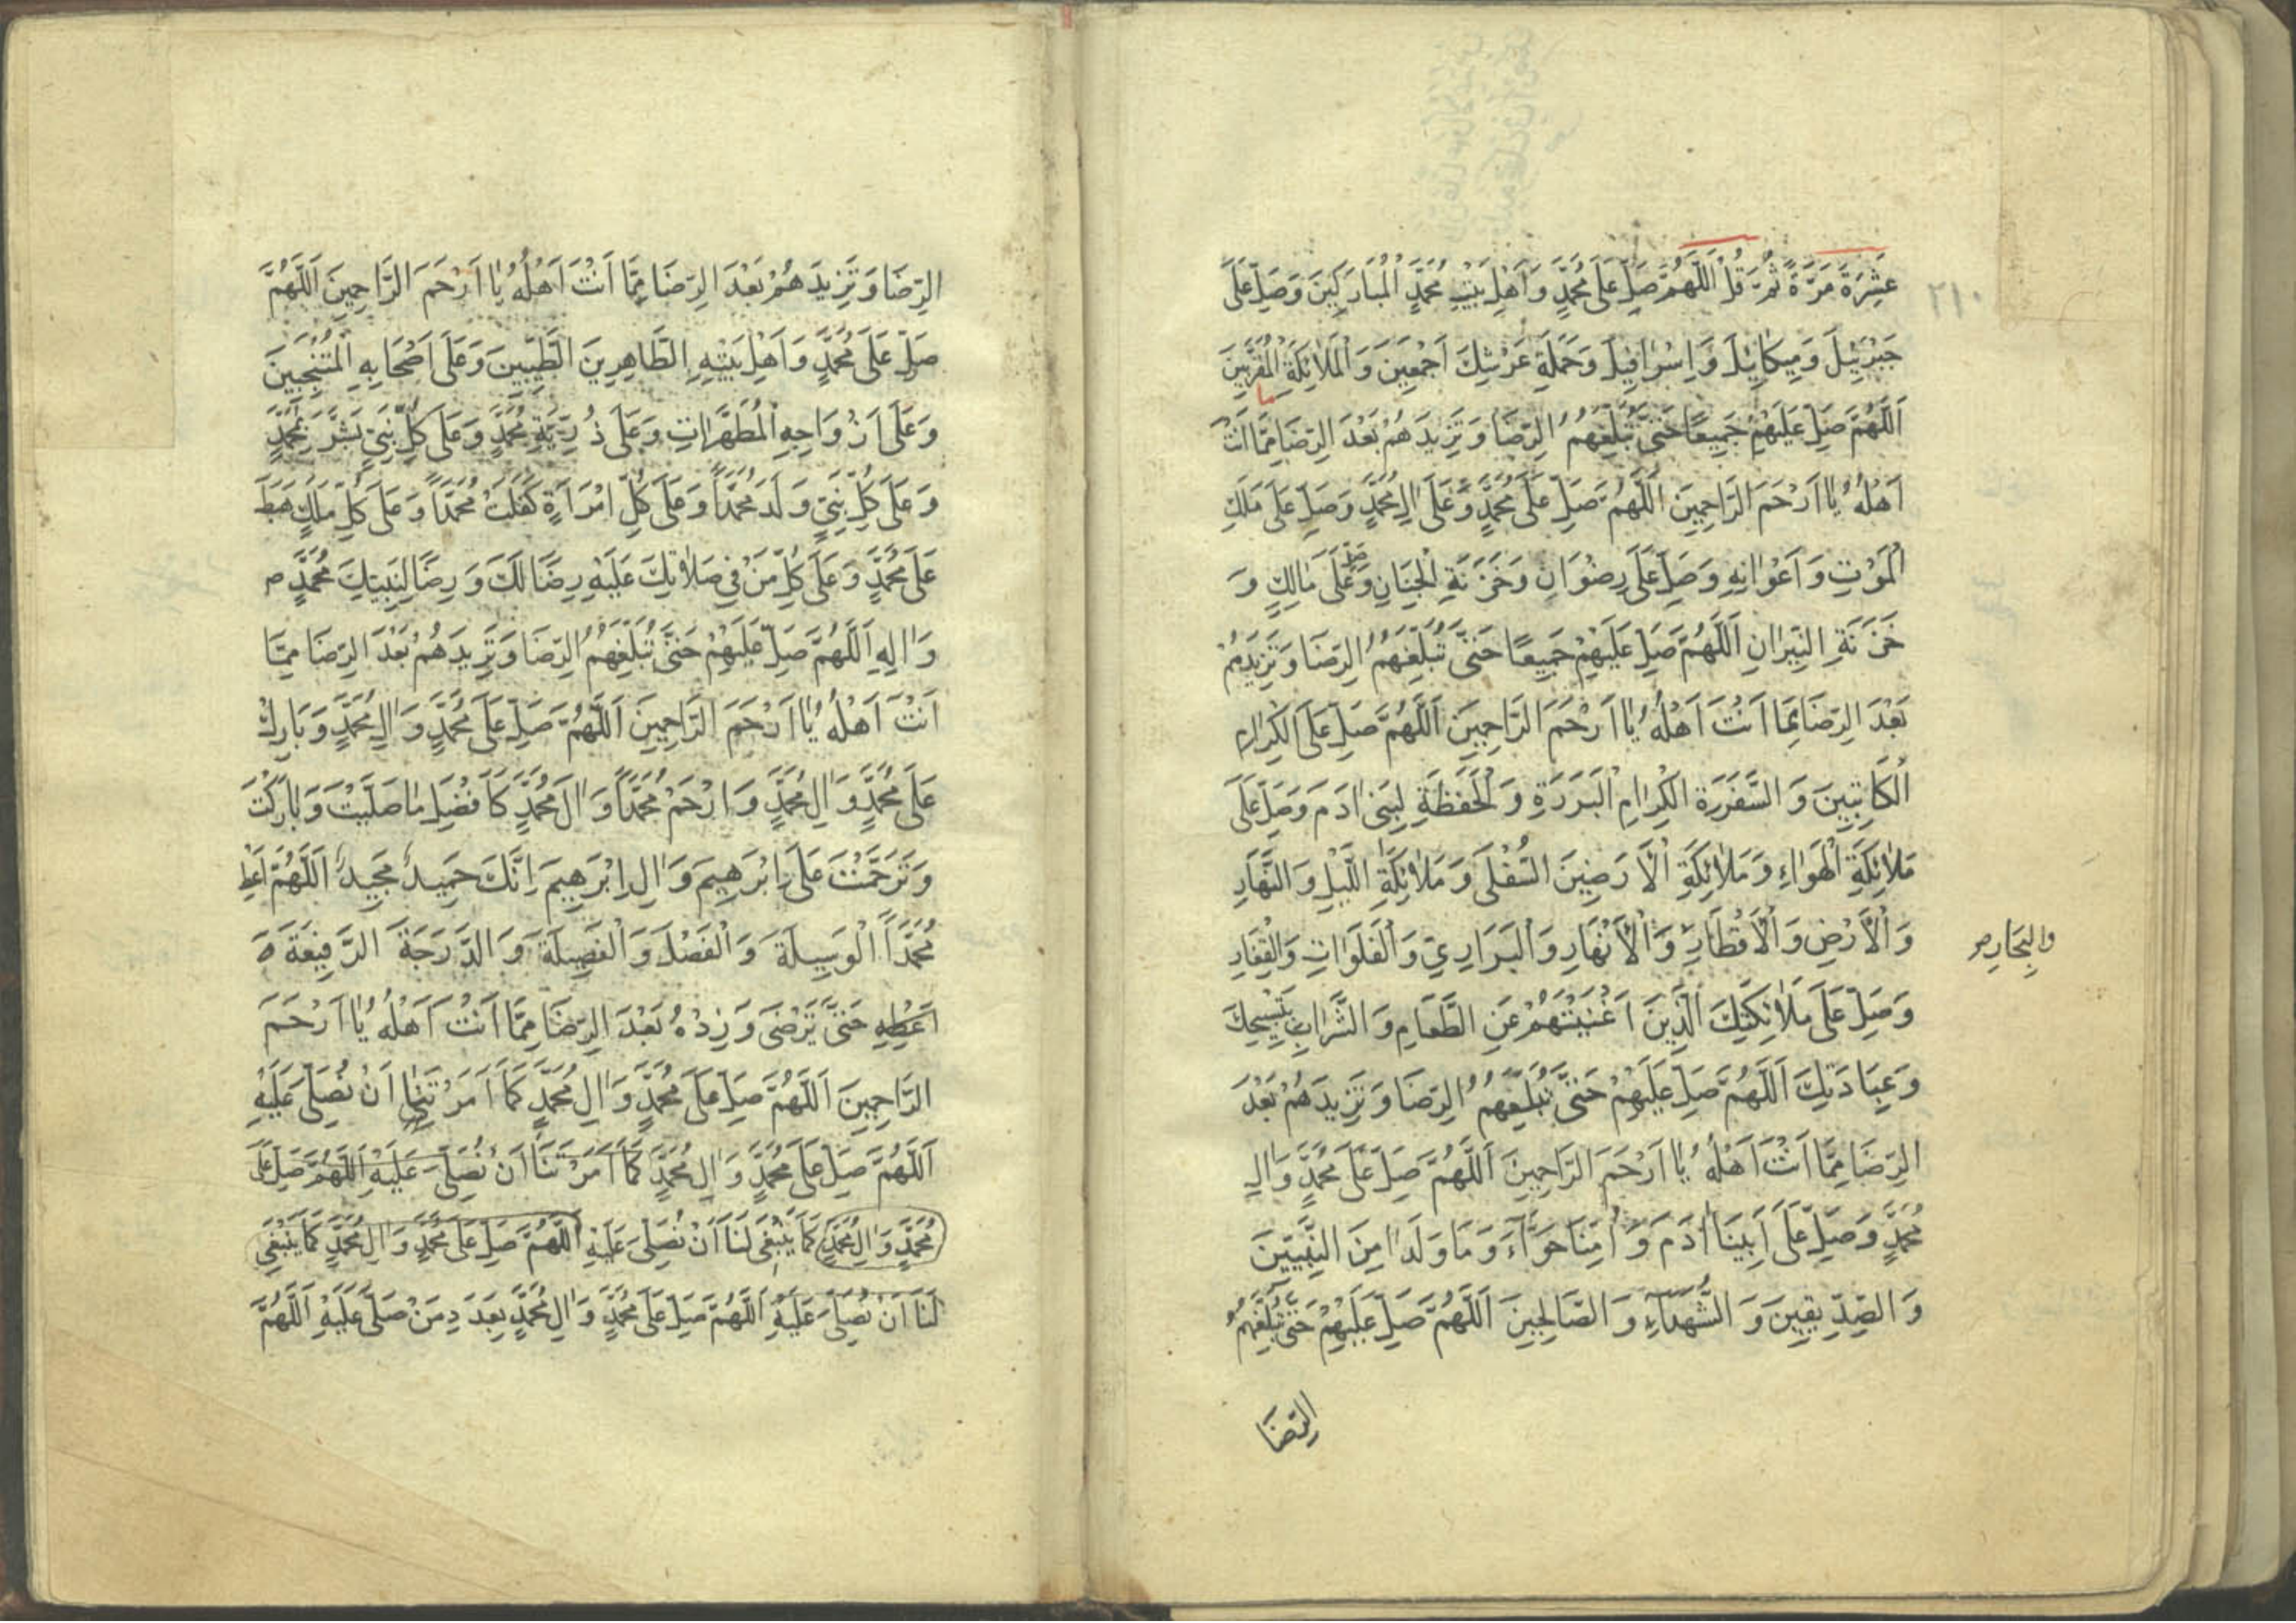 ٢١٠
عَشِرَةَ مَرَّةً ثُمَّ قُلْ اَللّٰهُمَّ صَلِّ عَلَى مُحَمَّدٍ وَ اَهْلِ بَيْتِ مُحَمَّدٍ الْمُبَارَكِينَ وَ صَلِّ عَلَى
جَبْرَئِيلَ وَ مِيكَائِيلَ وَ اِسْرَافِيلَ وَ حَمَلَةِ عَرْشِكَ اَجْمَعِينَ وَ الْمَلَائِكَةِ الْمُقَرَّبِينَ
اَللّٰهُمَّ صَلِّ عَلَيْهِمْ جَمِيعًا حَتّٰى تُبَلِّغَهُمُ الرِّضَا وَ تَزِيدَهُمْ بَعْدَ الرِّضَا مِمَّا اَنْتَ
اَهْلُهُ يَا اَرْحَمَ الرَّاحِمِينَ اَللّٰهُمَّ صَلِّ عَلَى مُحَمَّدٍ وَ عَلَى اٰلِ مُحَمَّدٍ وَ صَلِّ عَلَى مَلَكِ
الْمَوْتِ وَ اَعْوَانِهِ وَ صَلِّ عَلَى رِضْوَانِ وَ خَزَنَةِ الْجِنَانِ وَ صَلِّ عَلَى مَالِكٍ وَ
خَزَنَةِ النِّيرَانِ اَللّٰهُمَّ صَلِّ عَلَيْهِمْ جَمِيعًا حَتّٰى تُبَلِّغَهُمُ الرِّضَا وَ تَزِيدَهُمْ
بَعْدَ الرِّضَا مِمَّا اَنْتَ اَهْلُهُ يَا اَرْحَمَ الرَّاحِمِينَ اَللّٰهُمَّ صَلِّ عَلَى الْكِرَامِ
الْكَاتِبِينَ وَ السَّفَرَةِ الْكِرَامِ الْبَرَرَةِ وَ الْحَفَظَةِ لِبَنِي اٰدَمَ وَ صَلِّ عَلَى
مَلَائِكَةِ الْهَوَاءِ وَ مَلَائِكَةِ الْاَرَضِينَ السُّفْلَى وَ مَلَائِكَةِ اللَّيْلِ وَ النَّهَارِ
وَ الْاَرْضِ وَ الْاَقْطَارِ وَ الْاَنْهَارِ وَ الْبَرَارِيِّ وَ الْفَلَوَاتِ وَ الْقِفَارِ
والبِحَارِ صح
وَ صَلِّ عَلَى مَلَائِكَتِكَ الَّذِينَ اَغْنَيْتَهُمْ عَنِ الطَّعَامِ وَ الشَّرَابِ بِتَسْبِيحِكَ
وَ عِبَادَتِكَ اَللّٰهُمَّ صَلِّ عَلَيْهِمْ حَتّٰى تُبَلِّغَهُمُ الرِّضَا وَ تَزِيدَهُمْ بَعْدَ
الرِّضَا مِمَّا اَنْتَ اَهْلُهُ يَا اَرْحَمَ الرَّاحِمِينَ اَللّٰهُمَّ صَلِّ عَلَى مُحَمَّدٍ وَ اٰلِ
مُحَمَّدٍ وَ صَلِّ عَلَى اَبِينَا اٰدَمَ وَ اُمِّنَا حَوَّاءَ وَ مَا وَلَدَا مِنَ النَّبِيِّينَ
وَ الصِّدِّيقِينَ وَ الشُّهَدَاءِ وَ الصَّالِحِينَ اَللّٰهُمَّ صَلِّ عَلَيْهِمْ حَتّٰى تُبَلِّغَهُمُ
الرِّضَا
الرِّضَا وَ تَزِيدَهُمْ بَعْدَ الرِّضَا مِمَّا اَنْتَ اَهْلُهُ يَا اَرْحَمَ الرَّاحِمِينَ اَللّٰهُمَّ
صَلِّ عَلَى مُحَمَّدٍ وَ اَهْلِ بَيْتِهِ الطَّاهِرِينَ الطَّيِّبِينَ وَ عَلَى اَصْحَابِهِ الْمُنْتَجَبِينَ
وَ عَلَى اَزْوَاجِهِ الْمُطَهَّرَاتِ وَ عَلَى ذُرِّيَّةِ مُحَمَّدٍ وَ عَلَى كُلِّ نَبِيٍّ بَشَّرَ بِمُحَمَّدٍ
وَ عَلَى كُلِّ نَبِيٍّ وَلَدَ مُحَمَّدًا وَ عَلَى كُلِّ امْرَاَةٍ كَفَلَتْ مُحَمَّدًا وَ عَلَى كُلِّ مَلَكٍ هَبَطَ
عَلَى مُحَمَّدٍ وَ عَلَى كُلِّ مَنْ فِي صَلَاتِكَ عَلَيْهِ رِضًا لَكَ وَ رِضًا لِنَبِيِّكَ مُحَمَّدٍ ص
وَ اٰلِهِ اَللّٰهُمَّ صَلِّ عَلَيْهِمْ حَتّٰى تُبَلِّغَهُمُ الرِّضَا وَ تَزِيدَهُمْ بَعْدَ الرِّضَا مِمَّا
اَنْتَ اَهْلُهُ يَا اَرْحَمَ الرَّاحِمِينَ اَللّٰهُمَّ صَلِّ عَلَى مُحَمَّدٍ وَ اٰلِ مُحَمَّدٍ وَ بَارِكْ
عَلَى مُحَمَّدٍ وَ اٰلِ مُحَمَّدٍ وَ ارْحَمْ مُحَمَّدًا وَ اٰلَ مُحَمَّدٍ كَاَفْضَلِ مَا صَلَّيْتَ وَ بَارَكْتَ
وَ تَرَحَّمْتَ عَلَى اِبْرَهِيمَ وَ اٰلِ اِبْرَهِيمَ اِنَّكَ حَمِيدٌ مَجِيدٌ اَللّٰهُمَّ اَعْطِ
مُحَمَّدًا الْوَسِيلَةَ وَ الْفَضْلَ وَ الْفَضِيلَةَ وَ الدَّرَجَةَ الرَّفِيعَةَ وَ
اَعْطِهِ حَتّٰى تَرْضَى وَ زِدْهُ بَعْدَ الرِّضَا مِمَّا اَنْتَ اَهْلُهُ يَا اَرْحَمَ
الرَّاحِمِينَ اَللّٰهُمَّ صَلِّ عَلَى مُحَمَّدٍ وَ اٰلِ مُحَمَّدٍ كَمَا اَمَرْتَنَا اَنْ نُصَلِّيَ عَلَيْهِ
اَللّٰهُمَّ صَلِّ عَلَى مُحَمَّدٍ وَ اٰلِ مُحَمَّدٍ كَمَا اَمَرْتَنَا اَنْ نُصَلِّيَ عَلَيْهِ اَللّٰهُمَّ صَلِّ عَلَى
مُحَمَّدٍ وَ اٰلِ مُحَمَّدٍ كَمَا يَنْبَغِي لَنَا اَنْ نُصَلِّيَ عَلَيْهِ اَللّٰهُمَّ صَلِّ عَلَى مُحَمَّدٍ وَ اٰلِ مُحَمَّدٍ كَمَا يَنْبَغِي
لَنَا اَنْ نُصَلِّيَ عَلَيْهِ اَللّٰهُمَّ صَلِّ عَلَى مُحَمَّدٍ وَ اٰلِ مُحَمَّدٍ بِعَدَدِ مَنْ صَلَّى عَلَيْهِ اَللّٰهُمَّ